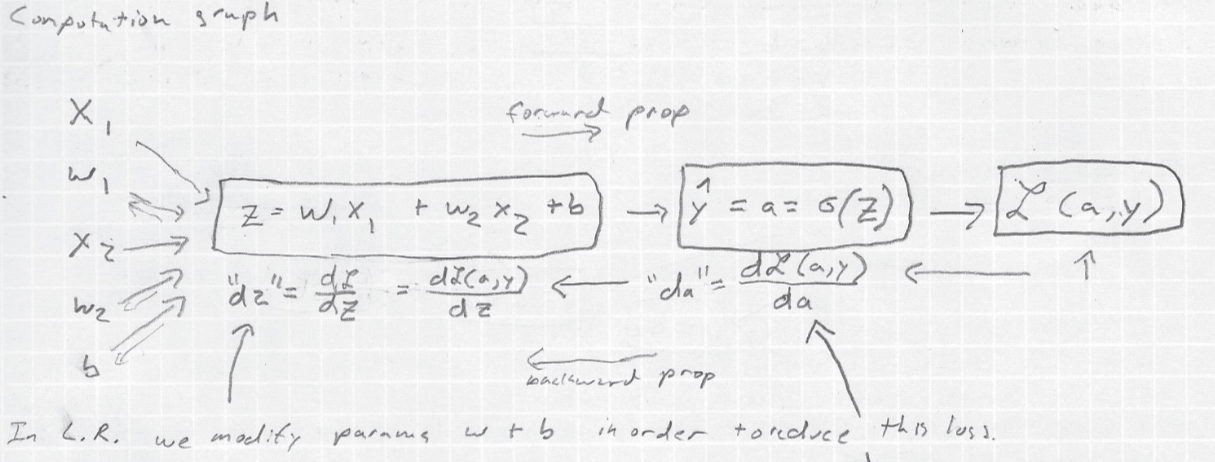 Computation graph
X₁
forward prop
w₁
z = w₁x₁ + w₂x₂ + b
ŷ = a = σ(z)
ℒ(a,y)
x₂
"dz" = dℒ/dz = dℒ(a,y)/dz
"da" = dℒ(a,y)/da
w₂
b
backward prop
In L.R. we modify params w + b in order to reduce this loss.